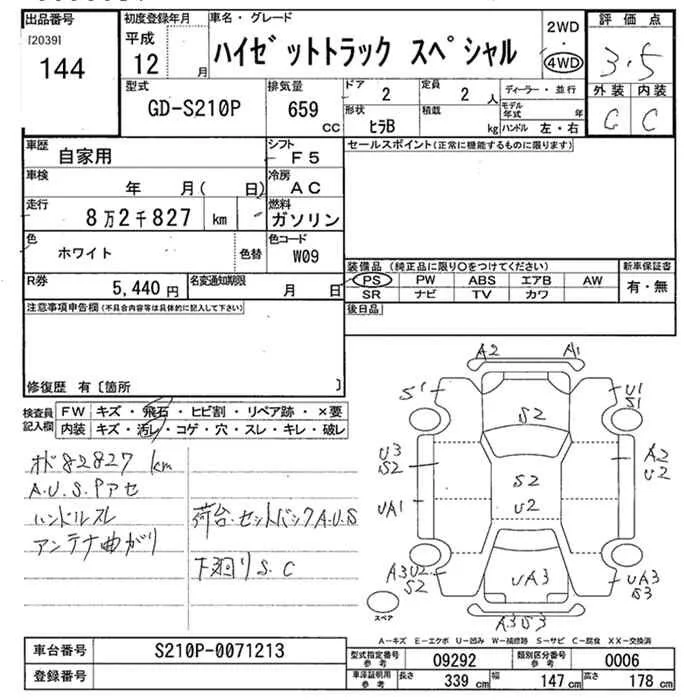 出品番号
[2039]
144
初度登録年月
平成
12 月
車名・グレード
ハイゼットトラック スペシャル
2WD
・
4WD
評価点
3.5
外装 内装
C C
型式
GD-S210P
排気量
659 CC
ドア
2
定員
2 人
形状
ヒラB
積載
kg
ディーラー・並行
モデル年式 年
ハンドル 左・右
車歴
自家用
シフト
F5
車検
年 月( 日)
冷房
AC
走行
8万2千827 km
燃料
ガソリン
色
ホワイト
色替
色コード
W09
R券
5,440 円
名変通知期限
月 日
セールスポイント(正常に機能するものに限ります)
装備品 (純正品に限り○をつけてください)
PS PW ABS エアB AW
SR ナビ TV カワ
新車保証書
有・無
後日品
注意事項申告欄(不具合内容等は具体的に記入して下さい)
修復歴 有〔箇所 〕
検査員記入欄
FW キズ・飛石・ヒビ割・リペア跡・×要
内装 キズ・汚レ・コゲ・穴・スレ・キレ・破レ
オド82827 km
A.U.S.Pアセ
ハンドルスレ
アンテナ曲がり
荷台.セットバックA.U.S
下廻りS.C
A2 A1
S1
U1
S1
S2
U3
S2
A2
U2
S2
U2
UA1
A3U2
S2
UA3
UA3
S3
A3S3
スペア
A-キズ E-エクボ U-凹み W-補修跡 S-サビ C-腐食 XX-交換済
車台番号
S210P-0071213
登録番号
型式指定番号
参考
09292
類別区分番号
参考
0006
車庫証明用
参考
長さ 339 cm
幅 147 cm
高さ 178 cm